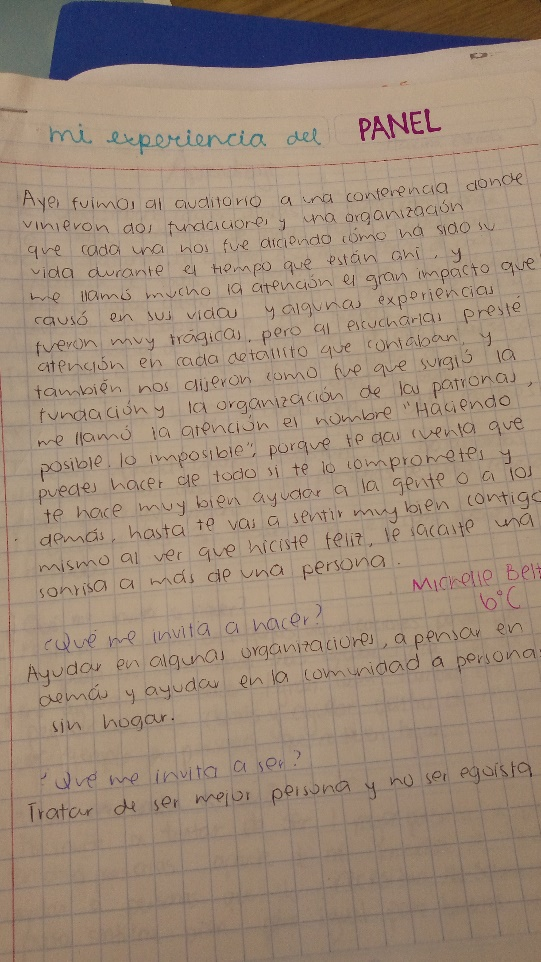 mi experiencia del PANEL
Ayer fuimos al auditorio a una conferencia donde
vinieron dos fundaciones y una organización
que cada una nos fue diciendo cómo ha sido su
vida durante el tiempo que están ahí, y
me llamó mucho la atención el gran impacto que
causó en sus vidas y algunas experiencias
fueron muy trágicas, pero al escucharlas presté
atención en cada detallito que contaban, y
también nos dijeron como fue que surgió la
fundación y la organización de las patronas,
me llamó la atención el nombre "Haciendo
posible lo imposible", porque te das cuenta que
puedes hacer de todo si te lo comprometes y
te hace muy bien ayudar a la gente o a los
demás, hasta te vas a sentir muy bien contigo
mismo al ver que hiciste feliz, le sacaste una
sonrisa a más de una persona.
Michelle Belt
6°C
¿Qué me invita a hacer?
Ayudar en algunas organizaciones, a pensar en
demás y ayudar en la comunidad a persona
sin hogar.
¿Qué me invita a ser?
Tratar de ser mejor persona y no ser egoísta